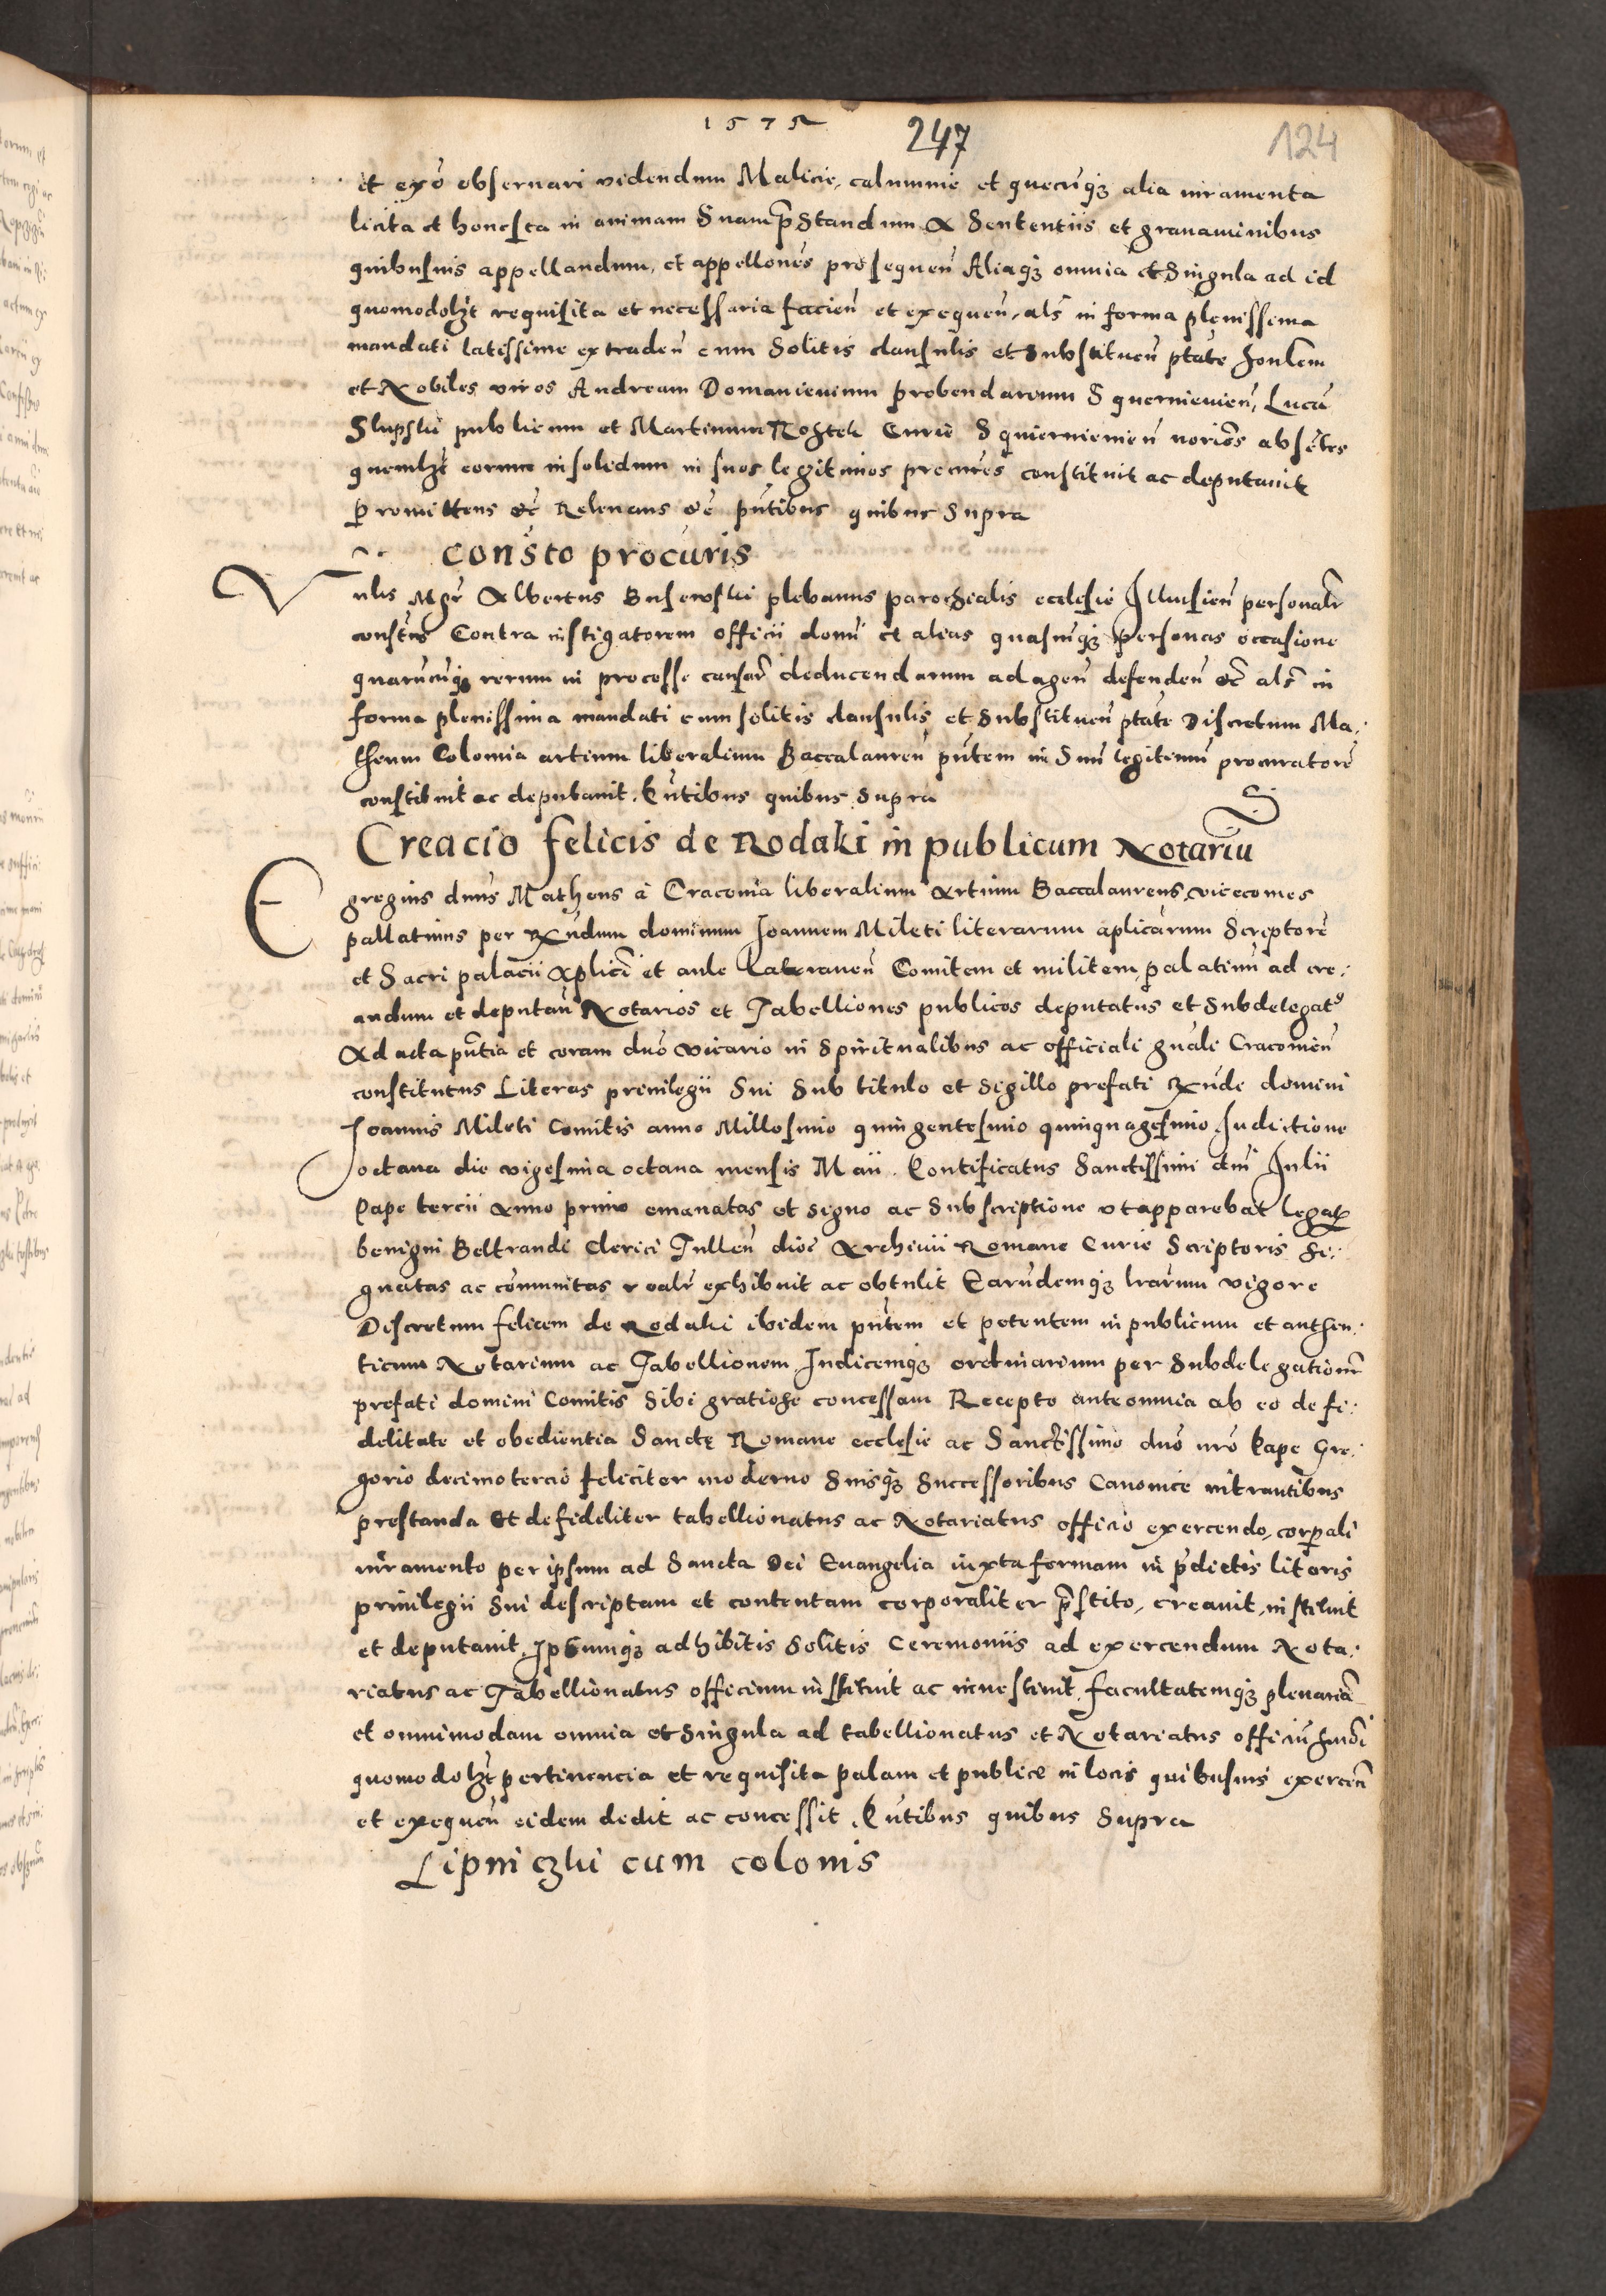 1572
247
124
et exō obseruari videndum Malicie, calumnie et quecūqȝ alia iuramenta
licita et honesta in animam Suam p̄standum A Sententiis et grauaminibus
quibusuis appellandum, et appellones prosequen̄ Aliaqȝ omnia et Singula ad id
quomodolȝt requisita et necessaria facien̄ et exequen̄, als in forma plenissima
mandati latissime extraden̄ cum Solitis clausulis et Substituen̄ ptate
et Nobiles viros Andream Domanieuium prebendarium Squernieuien̄, Lucā
Slupski publicum et Martinum Curie Squiernieuien̄ norios absētes
quemlȝt eorum insolidum in suos legitimos procūres constituit ac deputauit
promittens etc̄ Releuans etc̄ pn̄tibus quibus Supra
Consto procuris
Vnlis Mgr̄ Albertus Busewski plebanus parochialis ecclesie personalr̄
constūs Contra instigatorem officii domī et alias quascūqȝ personas occasione
quarūcūqȝ rerum in processe causar̄ deducendarum ad agen̄ defenden̄ etc̄ als in
forma plenissima mandati cum solitis clausulis et Substituen̄ ptate Discretum Ma:
theum Colomia artium liberalium Baccalaureū pn̄tem in Suū legitimū procuratorē
constituit ac deputauit. Pn̄tibus quibus Supra
Creacio felicis de Rodaki in publicum Notariū
Egregius dnus Matheus à Cracouia liberalium Artium Baccalaureus vicecomes
pallatinus per Rx̄ndum dominum Joannem Mileti literarum aplicārum Scriptorē
et Sacri palacii Aplici et aule Lateranen̄ Comitem et militem palatinū ad cre:
andum et deputan̄ Notarios et Tabelliones publicos deputatus et Subdelegatꝰ
Ad acta pn̄tia et coram dnō vicario in Spiritualibus ac officiali gn̄ali Cracouien̄
constitutus Literas priuilegii Sui Sub titulo et Sigillo prefati Rx̄ndi domini
Joannis Mileti Comitis anno Millesimo quingentesimo quinquagesimo Indictione
octaua die vigesima octaua mensis Maii. Pontificatus Sanctissimi dni Julii
Pape tercii Anno primo emanatas et signo ac Subscriptione vt apparebat
benigni Beltrandi Clerici Tullen̄ dioc̄ Archiuii Romane Curie Scriptoris Si:
gnatas ac cōmunitas realr̄ exhibuit ac obtulit Earūdemqȝ lrārum vigore
Discretum felicem de Rodaki ibidem pn̄tem et petentem in publicum et authen:
ticum Notarium ac Tabellionem Iudicemqȝ ordinarium per Subdelegationē
prefati domini Comitis Sibi gratiose concessam Recepto ante omnia ab eo de fi:
delitate et obedientia Sanctę Romane ecclesie ac Sanctissimo dnō nrō Pape Gre:
gorio decimotercio feliciter moderno Suisqȝ Successoribus Canonice intrantibus
prestanda Et de fideliter tabellionatus ac Notariatus officio exercendo, corp̄ali
iuramento per ipsum ad Sancta Dei Euangelia iuxta formam in p̄dictis literis
priuilegii Sui descriptam et contentam corporaliter p̄stito, creauit, instituit
et deputauit, Ipsumqȝ adhibitis Solitis Ceremoniis ad exercendum Nota:
riatus ac Tabellionatus officium instituit ac inuestiuit, facultatemqȝ plenariā
et omnimodam omnia et Singula ad tabellionatus et Notariatus officiū hm̄oi
quomodolȝt pertinencia et requisita palam et publice in locis quibusuis exercen̄
et exequen̄ eidem dedit ac concessit. Pn̄tibus quibus Supra
Lipniczki cum colonis